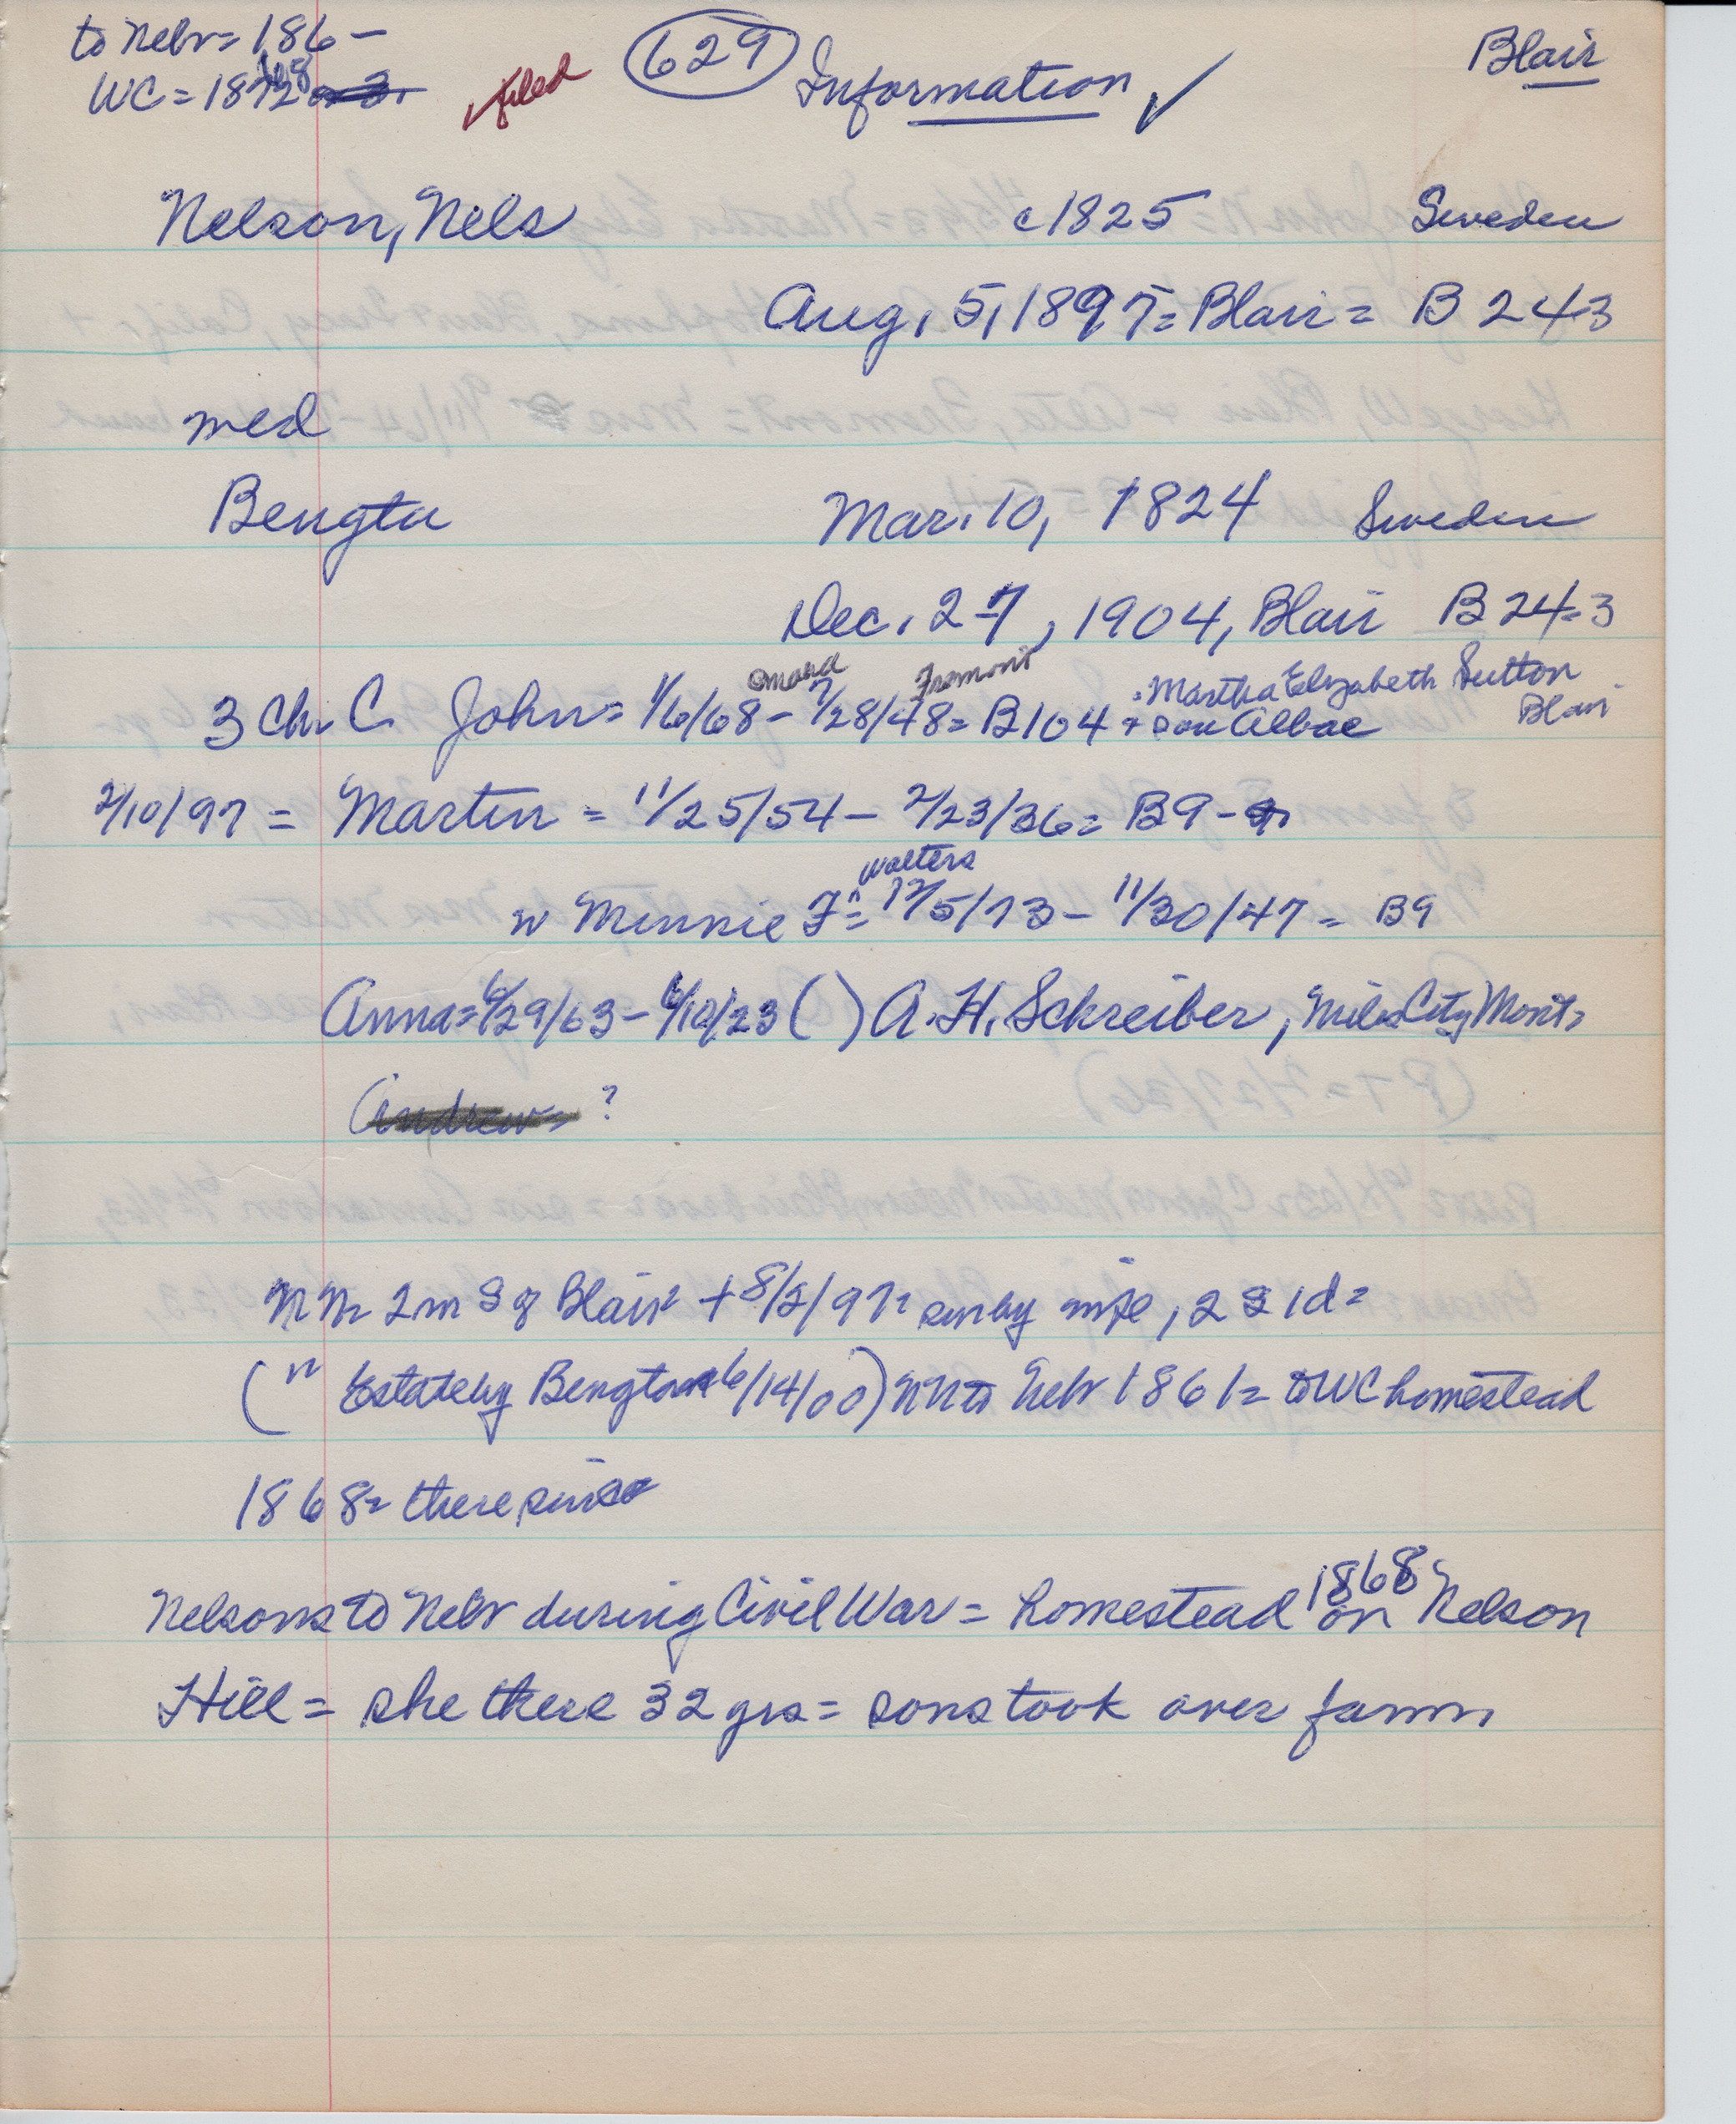 to Nebr = 186-
(629)
Blair
WC = 1872
✓ filed
Information ✓
Nelson, Nels c1825 Sweden
Aug, 5, 1897 = Blair = B 243
med
Bengta Mar. 10, 1824 Sweden
Dec. 27, 1904, Blair B 243
Omaha Fremont = Martha Elizabeth Sutton
3 Ch. C. John = 1/6/68 - 7/28/48 = B104 + son Albae Blair
2/10/97 = Martin = 11/25/54 - 2/23/36 = B9 -
Walters
w Minnie F = 12/5/73 - 11/30/47 = B9
Anna = 6/29/63 - 6/10/23 ( ) A. H. Schreiber, Miles City Mont =
Andrew = ?
NN 2m S of Blair + 8/5/97 = sur by wife, 2 s 1d =
( Estate by Bengta 6/14/00) NN to Nebr 1861 = to WC homestead
1868 = there since
1868
Nelsons to Nebr during Civil War = homestead on Nelson
Hill = she there 32 yrs = sons took over farm,